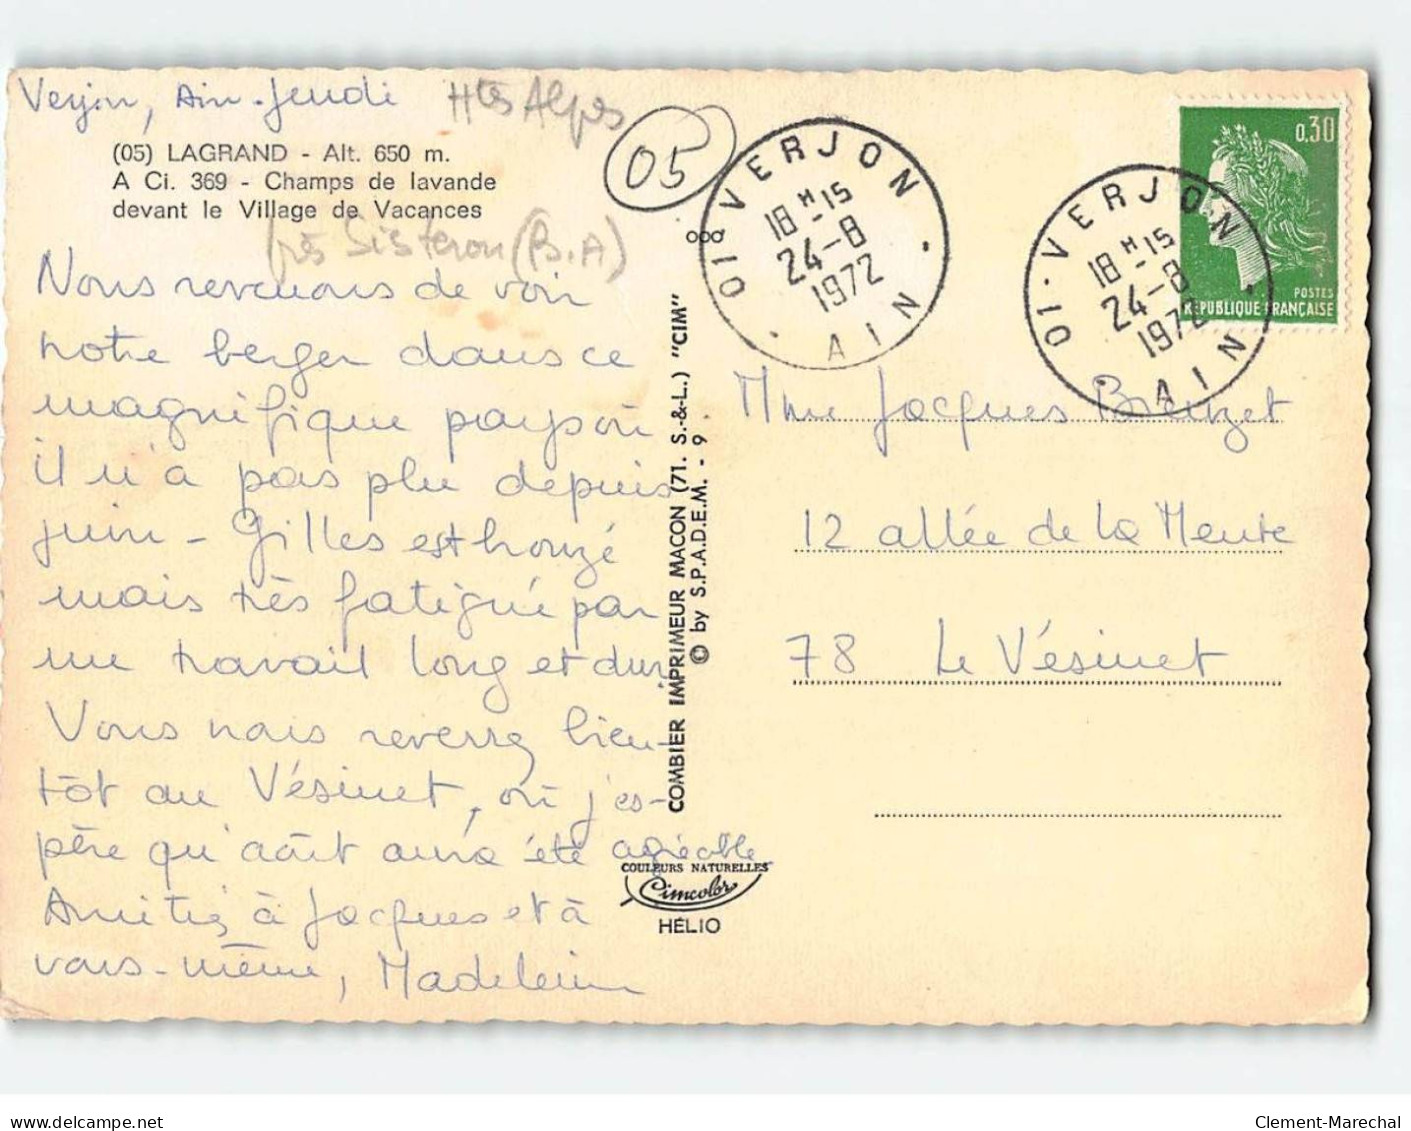 Verjon, Ain - Jeudi
Htes Alpes
(05) LAGRAND - Alt. 650 m.
A Ci. 369 - Champs de lavande
devant le Village de Vacances
05
près Sisteron (B.A)
Nous revenons de voir
notre berger dans ce
magnifique pays où
il n'a pas plu depuis
juin - Gilles est bronzé
mais très fatigué par
un travail long et dur.
Vous nous reverrez bien-
tôt au Vésinet, où j'es-
père qu'août aura été agréable
Amitiés à Jacques et à
vous-même, Madeleine
ooo
COMBIER IMPRIMEUR MACON (71. S.-&-L.) "CIM"
© by S.P.A.D.E.M. - 9
COULEURS NATURELLES
Cimcolor
HELIO
01 VERJON
18 H -15
24-8
1972
AIN
01 - VERJON
18 H -15
24-8
1972
AIN
0,30
POSTES
REPUBLIQUE FRANÇAISE
Mme Jacques
12 allée de la Meute
78 Le Vésinet
delcampe.net
Clement-Marechal